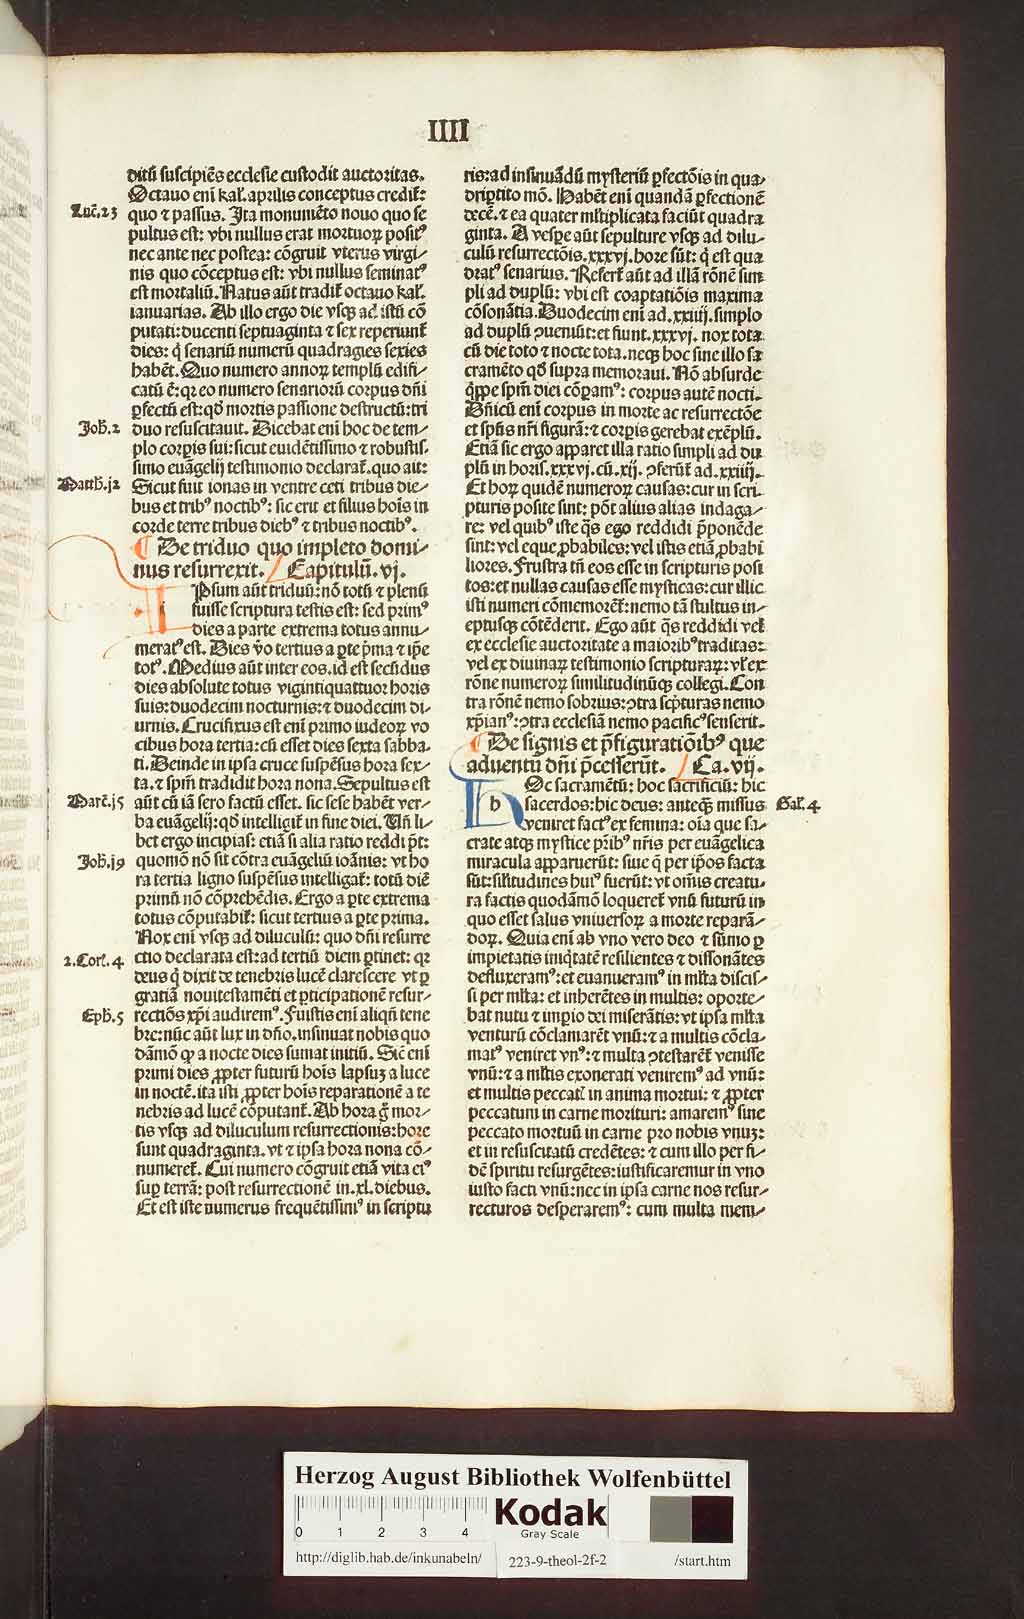 IIII
ditū suscipiēs ecclesie custodit auctoritas.
Octauo eni kal̄. aprilis conceptus credit̄:
Luc̄.23
quo ⁊ passus. Ita monumēto nouo quo se
pultus est: vbi nullus erat mortuoꝝ positꝰ
nec ante nec postea: cōgruit vterus virgi-
nis quo cōceptus est: vbi nullus seminatꝰ
est mortaliū. Natus aūt tradit̄ octauo kal̄.
ianuarias. Ab illo ergo die vsqꝫ ad istū cō
putati: ducenti septuaginta ⁊ sex reperiunt̄
dies: q̄ senariū numerū quadragies sexies
habēt. Quo numero annoꝝ templū edifi-
catū ē: qꝛ eo numero senariorū corpus dn̄i
ꝑfectū est: qd̄ mortis passione destructū: tri
Joh̄.2
duo resuscitauit. Dicebat eni hoc de tem-
plo corꝑis sui: sicut euidētissimo ⁊ robustis-
simo euāgelij testimonio declarat̄. quo ait:
Matth̄.j2
Sicut fuit ionas in ventre ceti tribus die-
bus et tribꝰ noctibꝰ: sic erit et filius hoīs in
corde terre tribus diebꝰ ⁊ tribus noctibꝰ.
¶ De triduo quo impleto domi-
nus resurrexit. Capitulū. vj.
IPsum aūt triduū: nō totū ⁊ plenū
fuisse scriptura testis est: sed primꝰ
dies a parte extrema totus annu-
meratꝰ est. Dies v̄o tertius a ꝑte p̄ma ⁊ ip̄e
totꝰ. Medius aūt inter eos. id est secūdus
dies absolute totus vigintiquattuor horis
suis: duodecim nocturnis: ⁊ duodecim di-
urnis. Crucifixus est eni primo iudeoꝝ vo
cibus hora tertia: cū esset dies sexta sabba-
ti. Deinde in ipsa cruce suspēsus hora sex-
ta. ⁊ spm̄ tradidit hora nona. Sepultus est
Marc̄.j5
aūt cū iā sero factū esset. sic sese habēt ver-
ba euāgelij: qd̄ intelligit̄ in fine diei. Vn̄ li-
bet ergo incipias: etiā si alia ratio reddi p̄t:
Joh̄.j9
quomō nō sit cōtra euāgeliū ioānis: vt ho
ra tertia ligno suspēsus intelligat̄: totū diē
primū nō cōprehēdis. Ergo a ꝑte extrema
totus cōputabit̄: sicut tertius a ꝑte prima.
Nox eni vsqꝫ ad diluculū: quo dn̄i resurre
2.Cor̄.4
ctio declarata est: ad tertiū diem ꝑtinet: qꝛ
deus q̄ dixit de tenebris lucē clarescere vt ꝑ
gratiā nouitestamēti et ꝑticipationē resur-
Eph̄.5
rectiōs xp̄i audiremꝰ. Fuistis eni aliqn̄ tene
bre: nūc aūt lux in dn̄o. insinuat nobis quo
dāmō qꝙ a nocte dies sumat initiū. Sic̄ eni
primi dies ꝓpter futurū hoīs lapsuꝫ a luce
in noctē. ita isti ꝓpter hoīs reparationē a te
nebris ad lucē cōputant̄. Ab hora g̊ mor-
tis vsqꝫ ad diluculum resurrectionis: hore
sunt quadraginta. vt ⁊ ipsa hora nona cō-
numeret̄. Cui numero cōgruit etiā vita eiꝰ
suꝑ terrā: post resurrectionē in. xl. diebus.
Et est iste numerus frequētissimꝰ in scriptu
ris: ad insinuādū mysteriū ꝑfectōis in qua-
driꝑtito mō. Habēt eni quandā ꝑfectionē
decē. ⁊ ea quater ml̄tiplicata faciūt quadra
ginta. A vesꝑe aūt sepulture vsqꝫ ad dilu-
culū resurrectōis. xxxvj. hore sūt: q̄ est qua
dratꝰ senarius. Refert̄ aūt ad illā rōnē sim
pli ad duplū: vbi est coaptatiōis maxima
cōsonātia. Duodecim eni ad. xxiiij. simplo
ad duplū ꝯueniūt: et fiunt. xxxvj. nox tota
cū die toto ⁊ nocte tota. neqꝫ hoc sine illo sa
cramēto qd̄ supra memoraui. Nō absurde
q̄ppe spm̄ diei cōꝑamꝰ: corpus autē nocti.
Dn̄icū eni corpus in morte ac resurrectōe
et spūs nr̄i figurā: ⁊ corꝑis gerebat exēplū.
Etiā sic ergo apparet illa ratio simpli ad du
plū in horis. xxxvj. cū. xij. ꝯferūt̄ ad. xxiiij.
Et hoꝝ quidē numeroꝝ causas: cur in scri
pturis posite sint: pōt alius alias indaga-
re: vel quibꝰ iste q̄s ego reddidi p̄ponēde
sint: vel eque ꝓbabiles: vel istis etiā ꝓbabi
liores. Frustra tn̄ eos esse in scripturis posi
tos: et nullas causas esse mysticas: cur illic
isti numeri cōmemorēt̄: nemo tā stultus in-
eptusqꝫ cōtēderit. Ego aūt q̄s reddidi vel̄
ex ecclesie auctoritate a maioribꝰ traditas:
vel ex diuinaꝝ testimonio scripturaꝝ: vl̄ ex
rōne numeroꝝ similitudinūqꝫ collegi. Con
tra rōnē nemo sobrius: ꝯtra scp̄turas nemo
xp̄ianꝰ: ꝯtra ecclesiā nemo pacificꝰ senserit.
¶ De signis et p̄figuratiōibꝰ que
aduentū dn̄i p̄cesserūt. Ca. vij.
HOc sacramētū: hoc sacrificiū: hic
Gal̄.4
sacerdos: hic deus: anteqꝫ missus
veniret factꝰ ex femina: oīa que sa-
crate atqꝫ mystice pr̄ibꝰ nr̄is per euāgelica
miracula apparuerūt: siue q̄ per ip̄os facta
sūt: sil̄itudines huiꝰ fuerūt: vt om̄is creatu-
ra factis quodāmō loqueret̄ vnū futurū in
quo esset salus vniuersoꝝ a morte reparā-
doꝝ. Quia eni ab vno vero deo ⁊ sūmo ꝑ
impietatis iniq̄tatē resilientes ⁊ dissonātes
defluxeramꝰ: et euanueramꝰ in ml̄ta discis-
si per ml̄ta: et inherētes in multis: oporte-
bat nutu ⁊ imꝑio dei miserātis: vt ipsa ml̄ta
venturū cōclamarēt vnū: ⁊ a multis cōcla-
matꝰ veniret vnꝰ: ⁊ multa ꝯtestarēt̄ venisse
vnū: ⁊ a ml̄tis exonerati veniremꝰ ad vnū:
et multis peccatl̄ in anima mortui: ⁊ ꝓpter
peccatum in carne morituri: amaremꝰ sine
peccato mortuū in carne pro nobis vnuꝫ:
et in resuscitatū credētes: ⁊ cum illo per fi-
dē spiritu resurgētes: iustificaremur in vno
iusto facti vnū: nec in ipsa carne nos resur-
recturos desperaremꝰ: cum multa mem-
Herzog August Bibliothek Wolfenbüttel
0 1 2 3 4
Kodak
Gray Scale
http://diglib.hab.de/inkunabeln/ 223-9-theol-2f-2 /start.htm